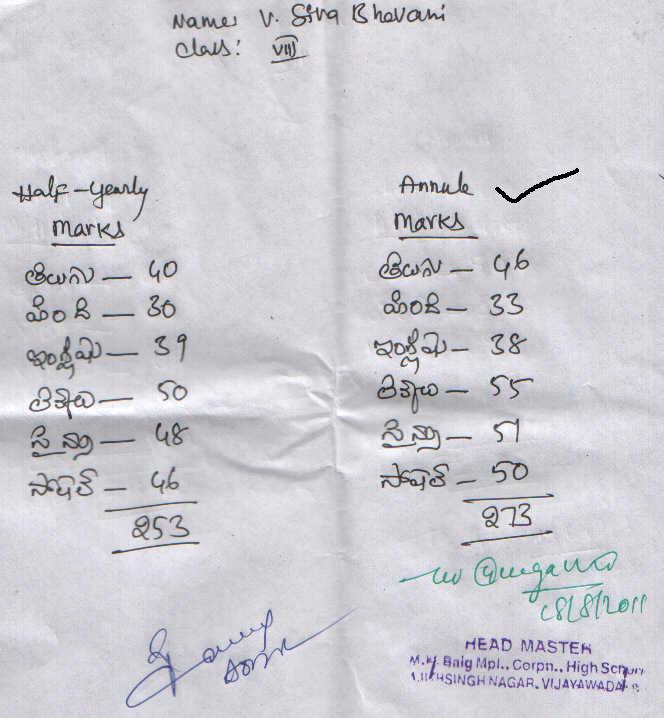 Name: V. Siva Bhavani
Class: VIII
Half-Yearly
Marks
తెలుగు — 40
హింది — 30
ఇంగ్లీషు — 39
లెక్కలు — 50
సైన్సు — 48
సోషల్ — 46
253
Annule
Marks
తెలుగు — 46
హింది — 33
ఇంగ్లీషు — 38
లెక్కలు — 55
సైన్సు — 51
సోషల్ — 50
273
18/8/2011
HEAD MASTER
M.K. Baig Mpl., Corpn., High School
SINGH NAGAR, VIJAYAWADA